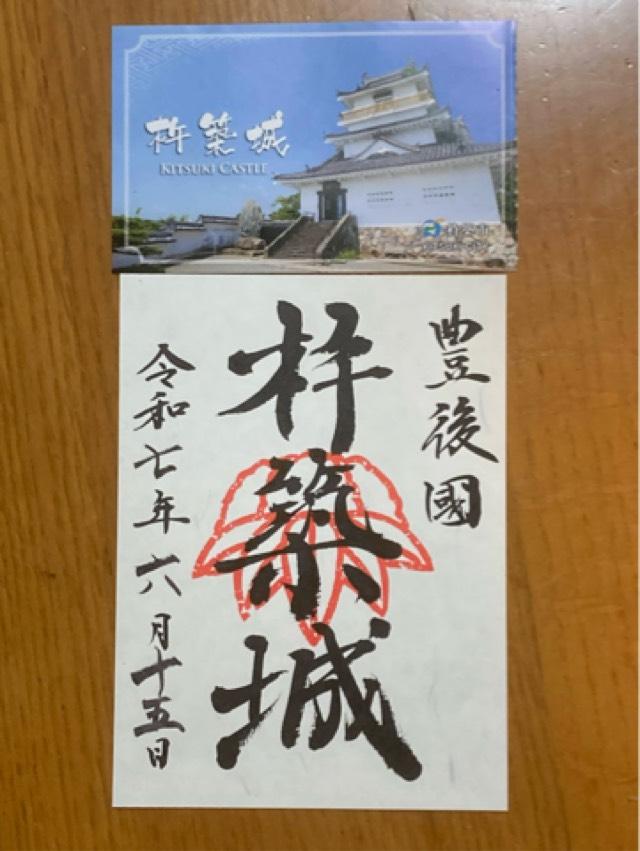 杵築城
KITSUKI CASTLE
豊後國
杵築城
令和七年六月十五日